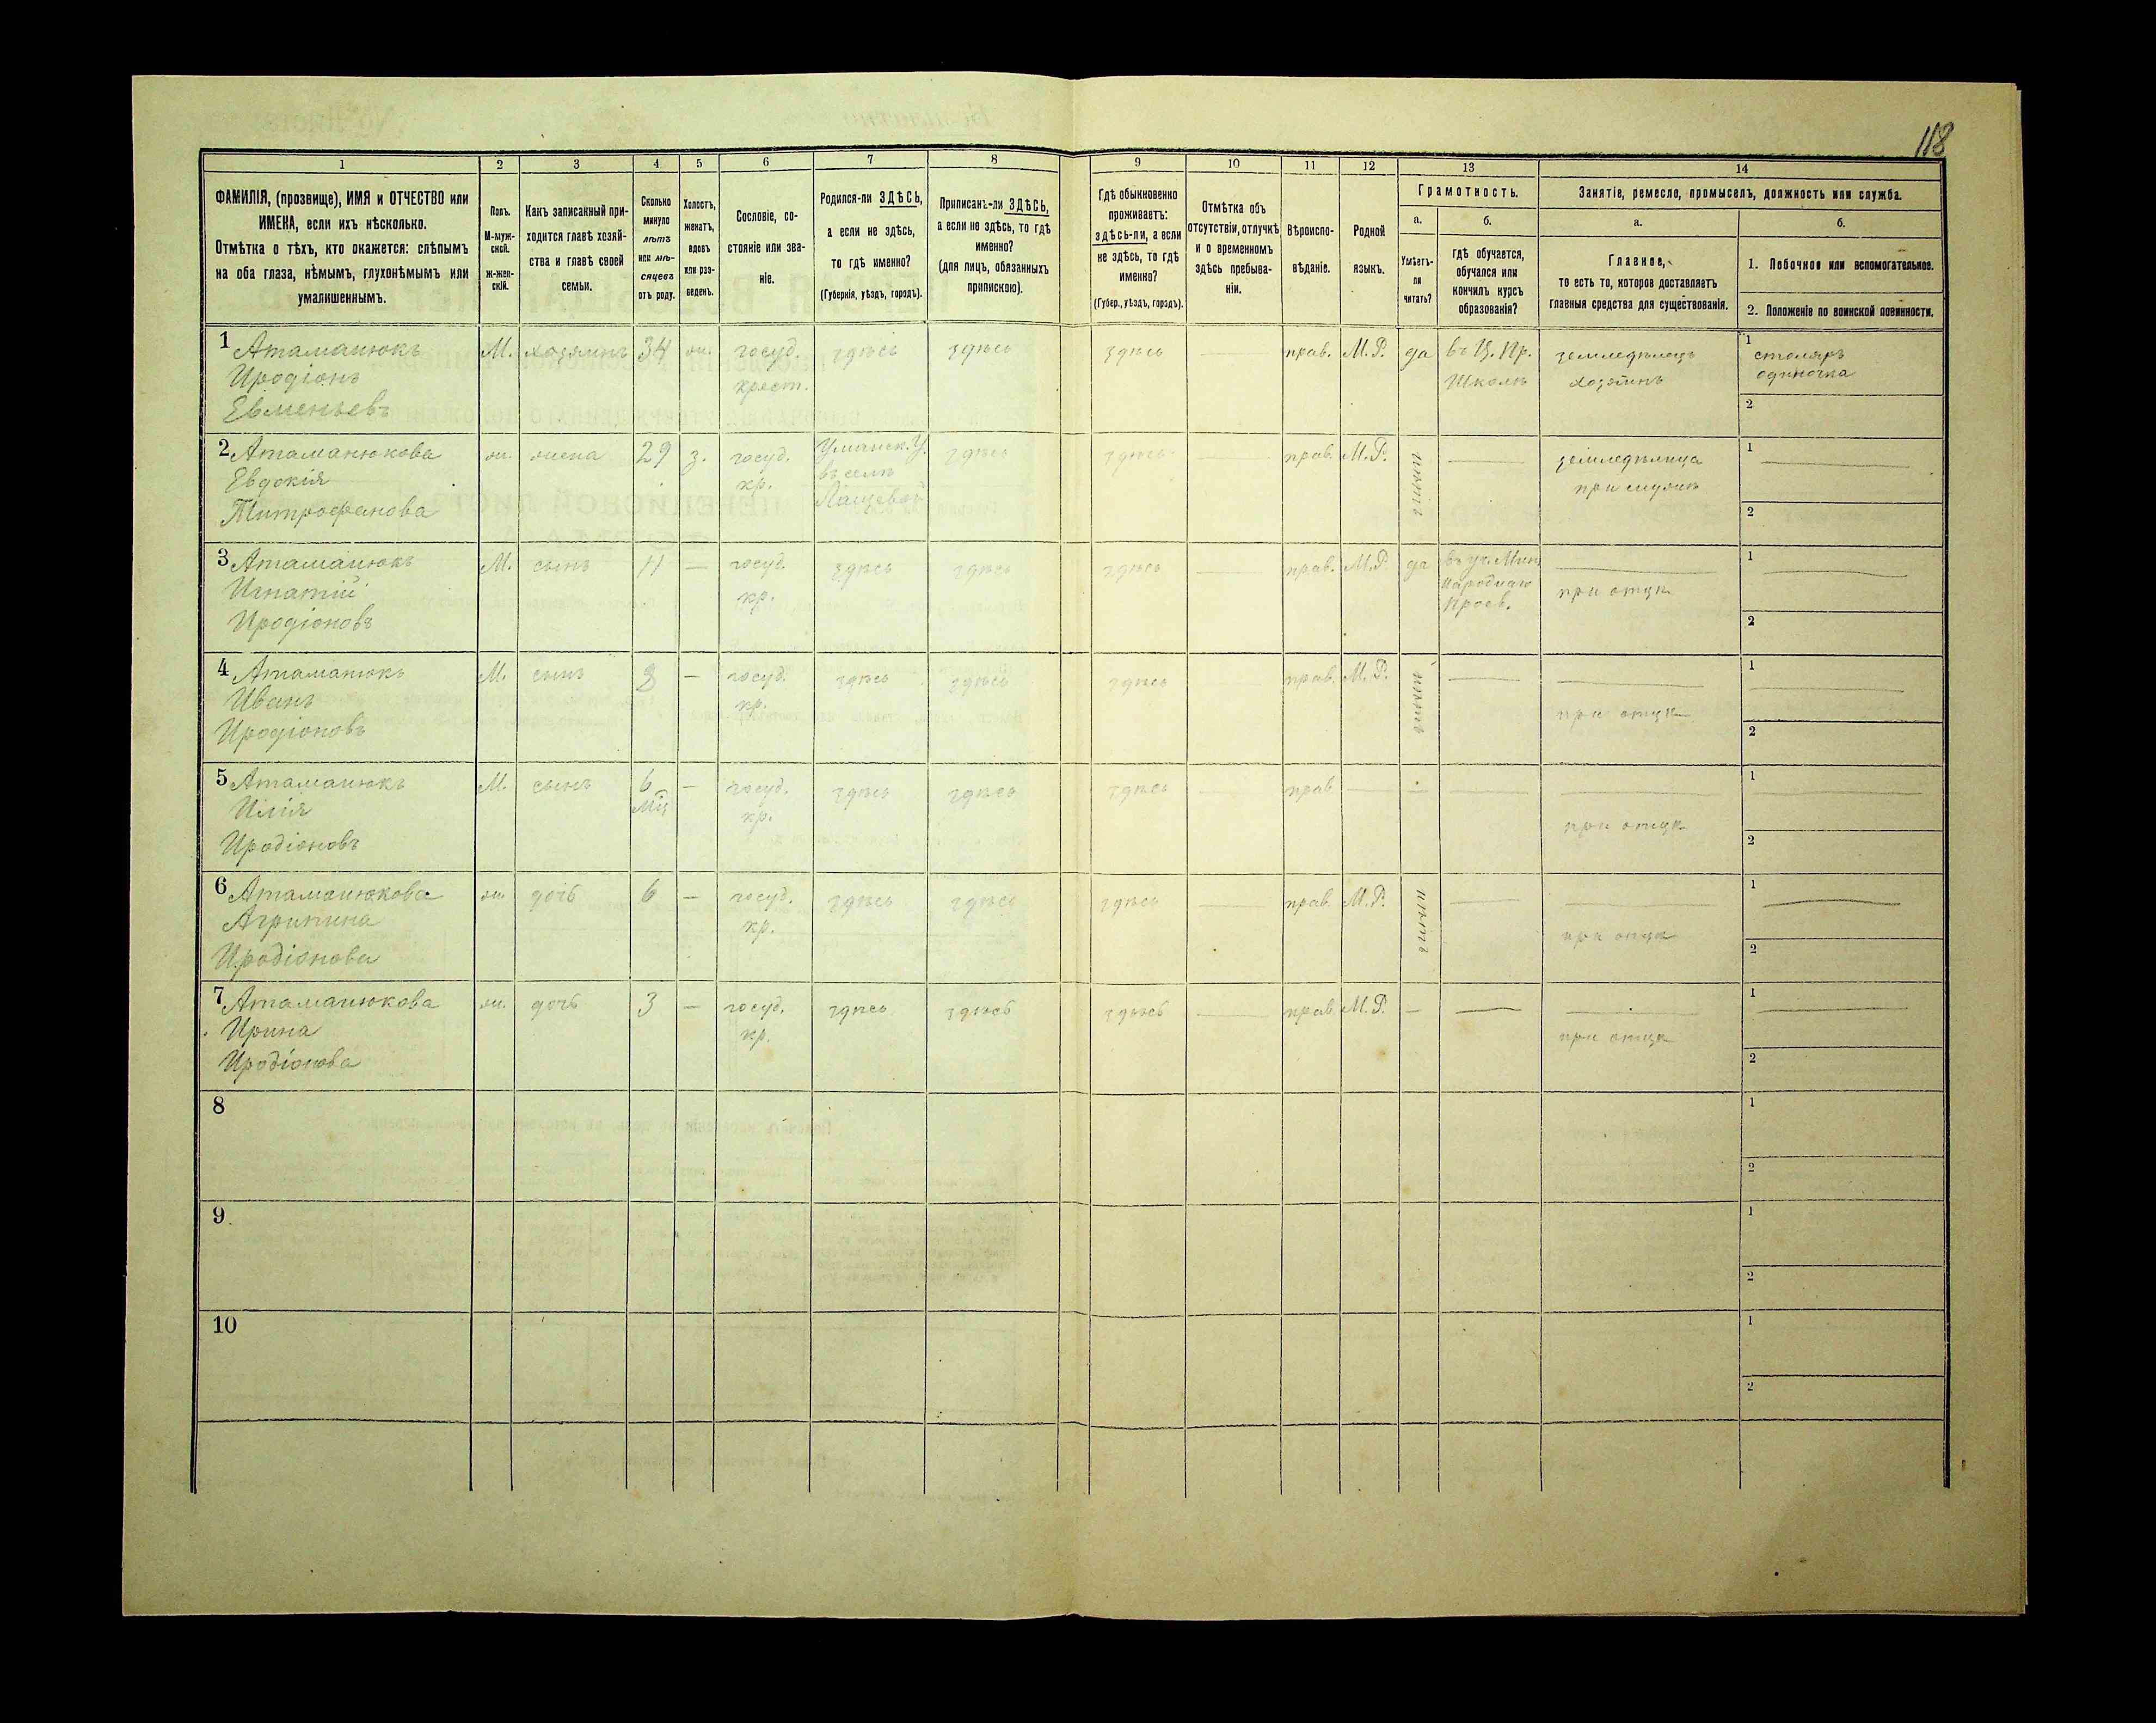 118
1
2
3
4
5
6
7
8
9
10
11
12
13
14
ФАМИЛІЯ, (прозвище), ИМЯ и ОТЧЕСТВО или
ИМЕНА, если ихъ нѣсколько.
Отмѣтка о тѣхъ, кто окажется: слѣпымъ
на оба глаза, нѣмымъ, глухонѣмымъ или
умалишеннымъ.
Полъ.
М-муж-
ской.
ж-жен-
скій.
Какъ записанный при-
ходится главѣ хозяй-
ства и главѣ своей
семьи.
Сколько
минуло
лѣтъ
или мѣ-
сяцевъ
отъ роду.
Холостъ,
женатъ,
вдовъ
или раз-
веденъ.
Сословіе, со-
стояніе или зва-
ніе.
Родился-ли ЗДѢСЬ,
а если не здѣсь,
то гдѣ именно?
(Губернія, уѣздъ, городъ).
Приписанъ-ли ЗДѢСЬ,
а если не здѣсь, то гдѣ
именно?
(для лицъ, обязанныхъ
припискою).
Гдѣ обыкновенно
проживаетъ:
здѣсь-ли, а если
не здѣсь, то гдѣ
именно?
(Губер., уѣздъ, городъ).
Отмѣтка объ
отсутствіи, отлучкѣ
и о временномъ
здѣсь пребыва-
ніи.
Вѣроиспо-
вѣданіе.
Родной
языкъ.
Грамотность.
а.
Умѣетъ-
ли
читать?
б.
гдѣ обучается,
обучался или
кончилъ курсъ
образованія?
Занятіе, ремесло, промыселъ, должность или служба.
а.
Главное,
то есть то, которое доставляетъ
главныя средства для существованія.
б.
1. Побочное или вспомогательное.
2. Положеніе по воинской повинности.
1 Атаманюкъ
Иродіонъ
Евменьевъ
М.
хозяинъ
34
ж.
госуд.
крест.
здѣсь
здѣсь
здѣсь
прав.
М.Р.
да
въ Ц. Пр.
Школѣ
земледѣлецъ
хозяинъ
1
столяръ
одиночка
2
2 Атаманюкова
Евдокія
Митрофанова
ж.
жена
29
з.
госуд.
кр.
Уманск. У.
въ селѣ
здѣсь
здѣсь
прав.
М.Р.
нѣтъ
земледѣлица
при мужѣ
1
2
3 Атаманюкъ
Игнатій
Иродіоновъ
М.
сынъ
11
госуд.
кр.
здѣсь
здѣсь
здѣсь
прав.
М.Р
да
въ уч. Мин.
народнаго
Просв.
при отцѣ
1
2
4 Атаманюкъ
Иванъ
Иродіоновъ
М.
сынъ
8
госуд.
кр.
здѣсь
здѣсь
здѣсь
прав.
М.Р.
нѣтъ
при отцѣ
1
2
5 Атаманюкъ
Илія
Иродіоновъ
М.
сынъ
6
мц
госуд.
кр.
здѣсь
здѣсь
здѣсь
прав
при отцѣ
1
2
6 Атаманюкова
Агрипина
Иродіонова
ж.
дочь
6
госуд.
кр.
здѣсь
здѣсь
здѣсь
прав.
М.Р.
нѣтъ
при отцѣ
1
2
7 Атаманюкова
Ирина
Иродіонова
ж.
дочь
3
госуд.
кр.
здѣсь
здѣсь
здѣсь
прав
М.Р.
при отцѣ
1
2
8
1
2
9
1
2
10
1
2